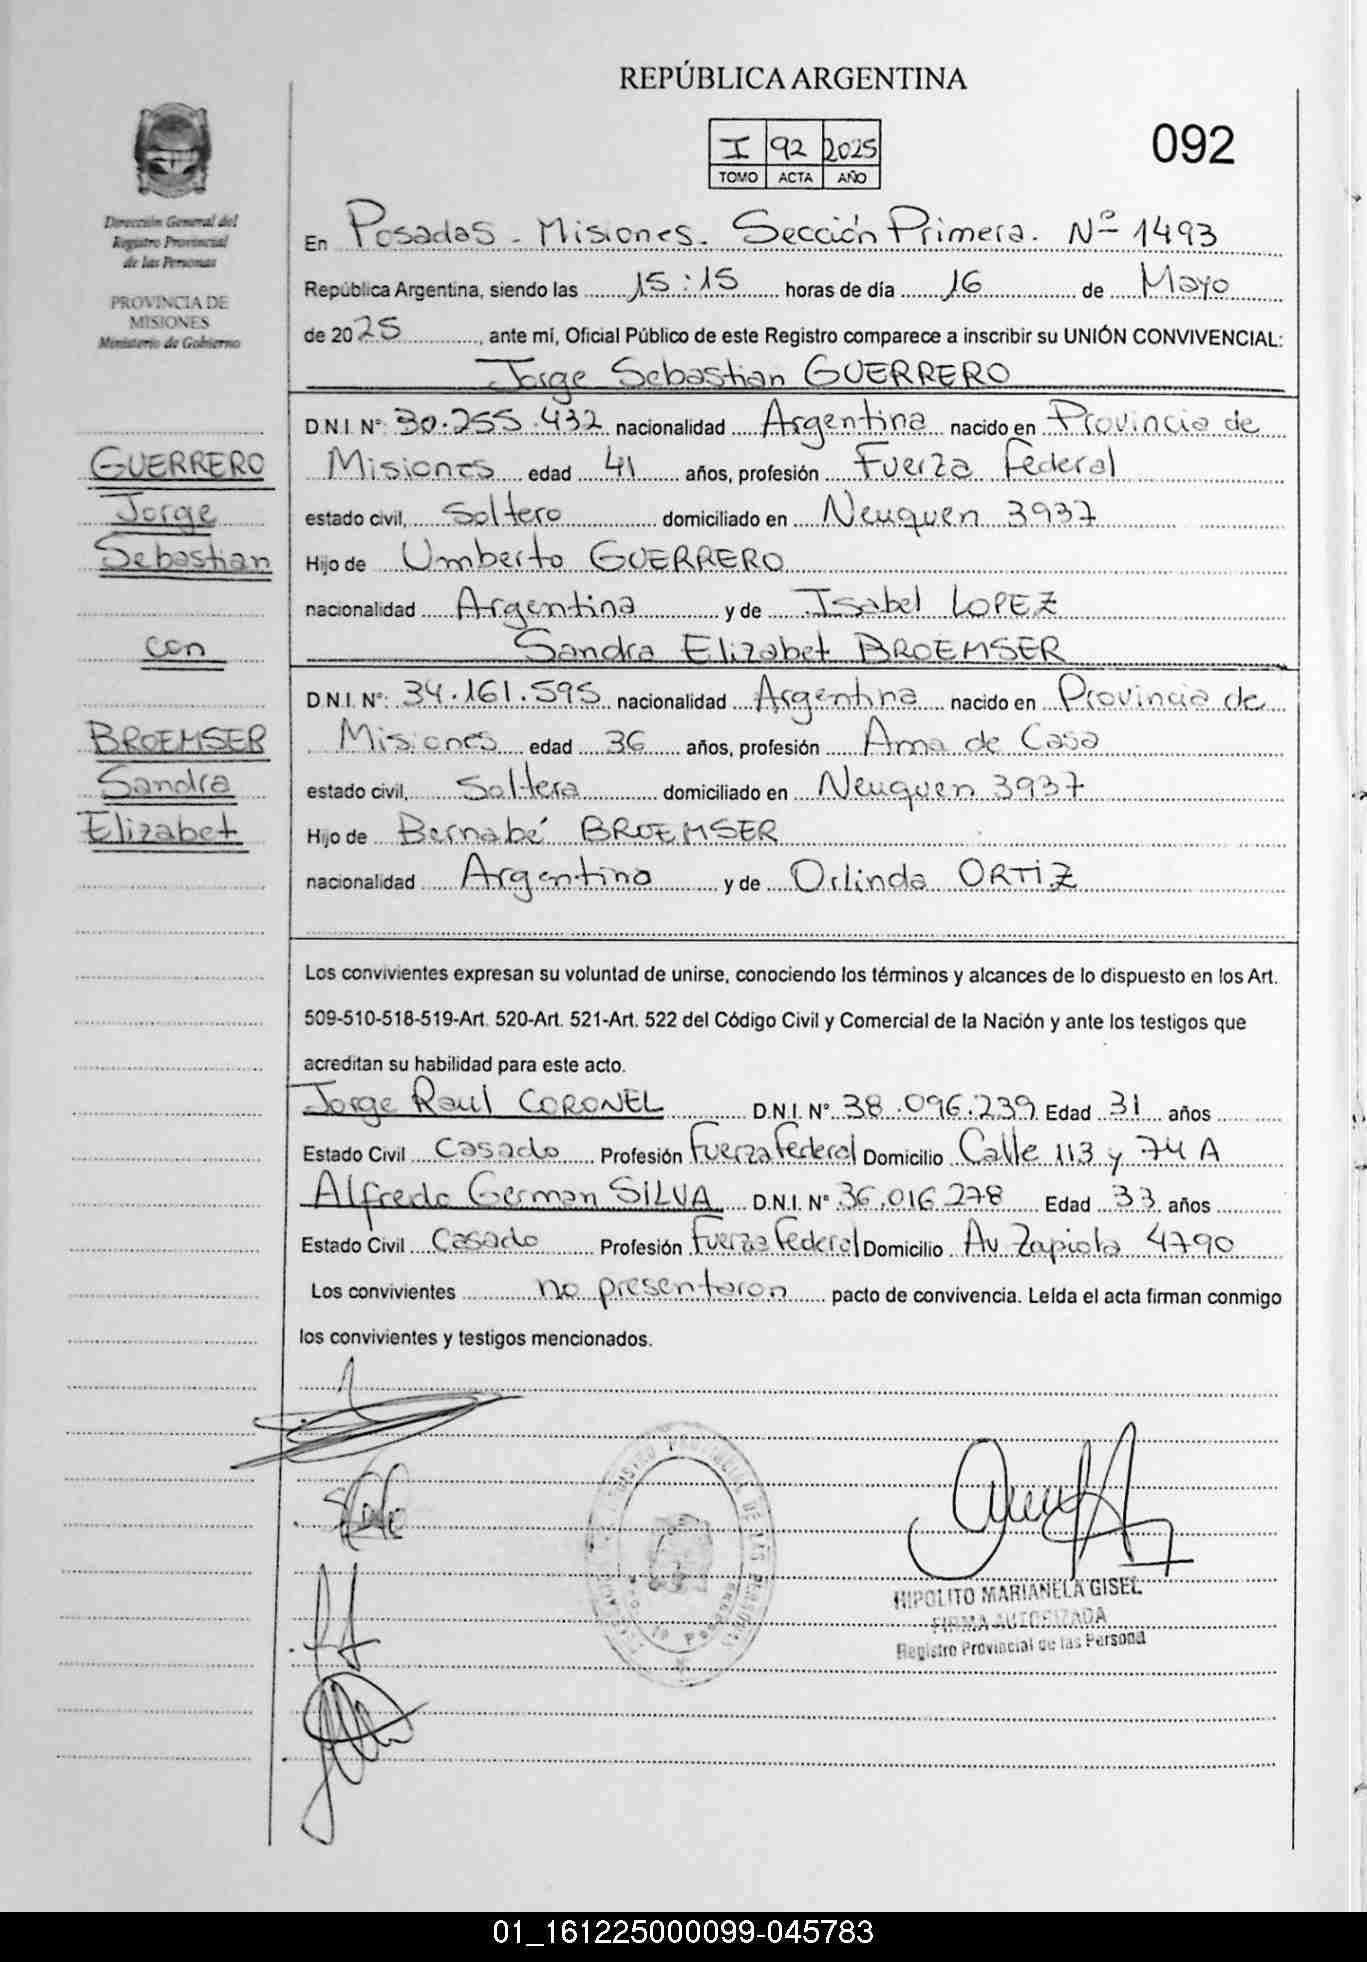 REPÚBLICA ARGENTINA
I 92 2025
TOMO ACTA AÑO
092
Dirección General del
Registro Provincial
de las Personas
PROVINCIA DE
MISIONES
Ministerio de Gobierno
En Posadas - Misiones. Sección Primera. Nº 1493
República Argentina, siendo las 15:15 horas de día 16 de Mayo
de 2025, ante mí, Oficial Público de este Registro comparece a inscribir su UNIÓN CONVIVENCIAL:
Jorge Sebastian GUERRERO
D.N.I. N°: 30.255.432 nacionalidad Argentina nacido en Provincia de
Misiones edad 41 años, profesión Fuerza Federal
estado civil, Soltero domiciliado en Neuquen 3937
Hijo de Umberto GUERRERO
nacionalidad Argentina y de Isabel LOPEZ
Sandra Elizabet BROEMSER
D.N.I. N°: 34.161.595 nacionalidad Argentina nacido en Provincia de
Misiones edad 36 años, profesión Ama de Casa
estado civil, Soltera domiciliado en Neuquen 3937
Hijo de Bernabé BROEMSER
nacionalidad Argentina y de Orlinda ORTIZ
GUERRERO
Jorge
Sebastian
con
BROEMSER
Sandra
Elizabet
Los convivientes expresan su voluntad de unirse, conociendo los términos y alcances de lo dispuesto en los Art.
509-510-518-519-Art. 520-Art. 521-Art. 522 del Código Civil y Comercial de la Nación y ante los testigos que
acreditan su habilidad para este acto.
Jorge Raul CORONEL D.N.I. N° 38.096.239 Edad 31 años
Estado Civil Casado Profesión Fuerza Federal Domicilio Calle 113 y 74 A
Alfredo German SILVA D.N.I. N° 36.016.278 Edad 33 años
Estado Civil Casado Profesión Fuerza Federal Domicilio Av. Zapiola 4790
Los convivientes no presentaron pacto de convivencia. Leída el acta firman conmigo
los convivientes y testigos mencionados.
HIPOLITO MARIANELA GISEL
FIRMA AUTORIZADA
Registro Provincial de las Persona
01_161225000099-045783